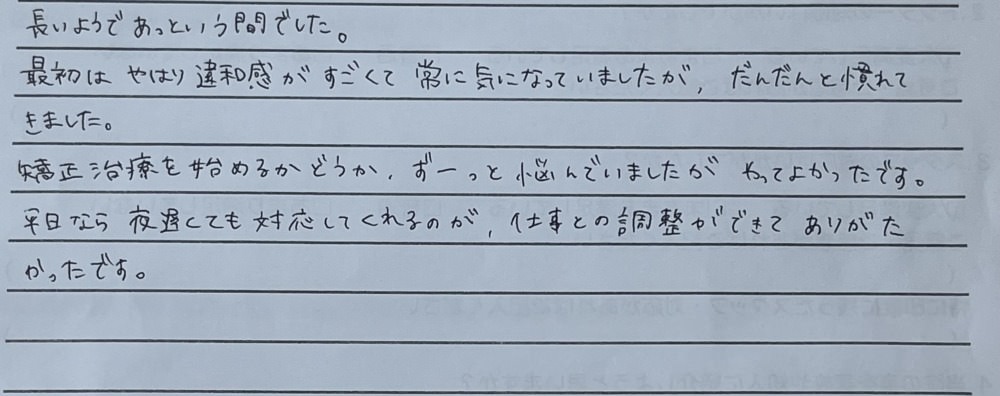 長いようであっという間でした。
最初は やはり違和感が すごくて 常に 気になっていましたが、 だんだんと慣れて
きました。
矯正治療を始めるかどうか、ずーっと 悩んでいましたが やってよかったです。
平日なら 夜遅くても 対応してくれるのが、仕事との調整ができて ありがた
かったです。